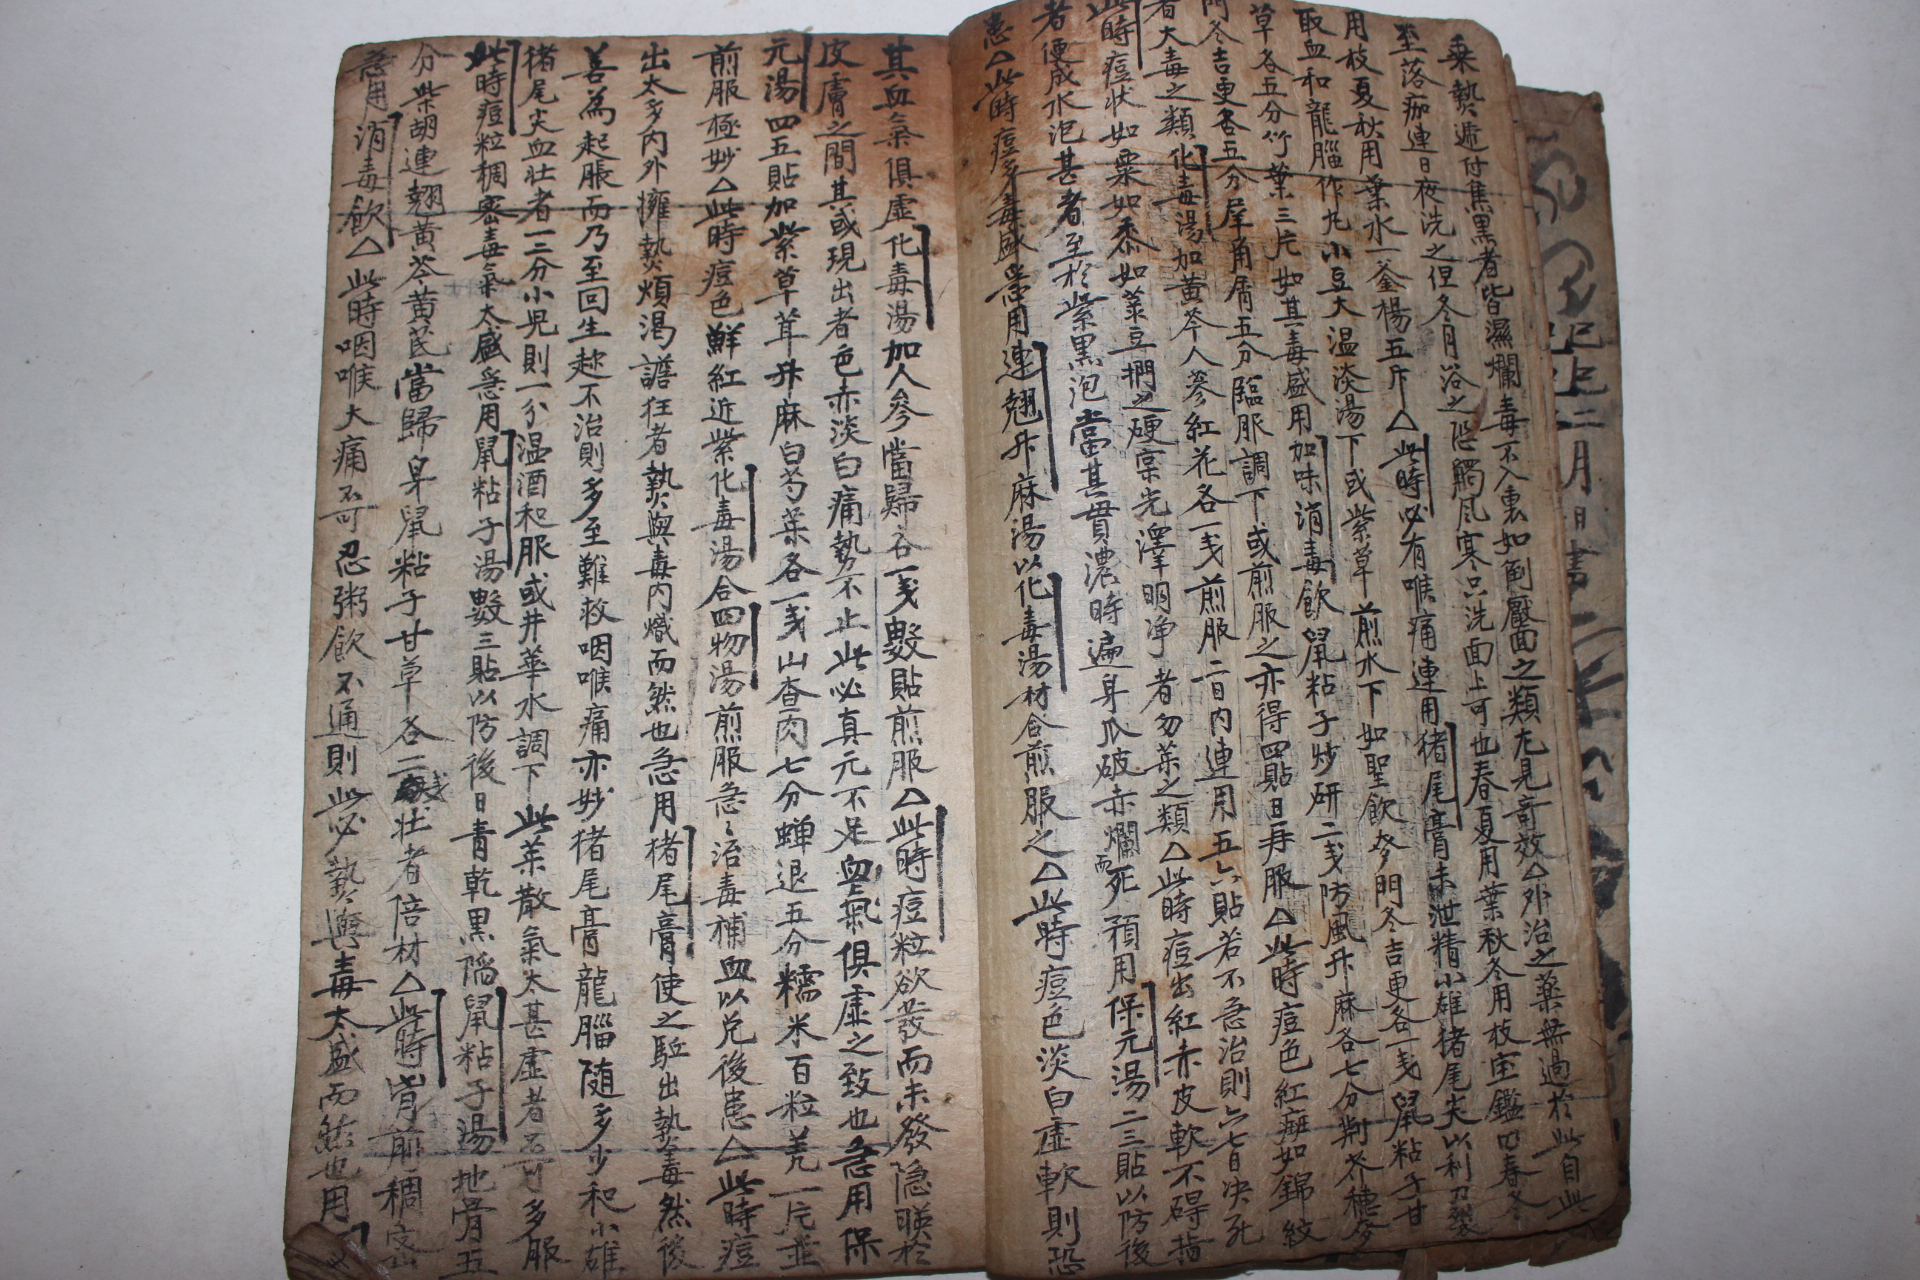 乗熱遍付焦黑者皆濕爛毒不入裏如倒靨面之類尤見奇效△外治之藥無過於此自此
至落痂連日夜洗之但冬月浴之恐觸風寒只洗面上可也春夏用葉秋冬用枝
用枝夏秋用葉水一釜楊五斤△此時必有喉痛連用猪尾膏未泄精小雄猪尾尖以利刀裂
取血和龍腦作丸小豆大温淡湯下或紫草煎水下如聖飮麥門冬吉更各一戔鼠粘子甘
草各五分竹葉三片如其毒盛用加味消毒飮鼠粘子炒研二戔防風升麻各七分荊芥穗麥
門冬吉更各五分犀角屑五分臨服調下或煎服之亦得四貼日再服△此時痘色紅斑如錦紋
者大毒之類化毒湯加黃芩人參紅花各一戔煎服二日內連用五六貼若不急治則六七日決死
此時痘状如粟如黍如菉豆捫之硬實光澤明净者勿薬之類△此時痘出紅赤皮軟不碍指
者便成水泡甚者至於紫黑泡當其貫濃時遍身瓜破赤爛而死預用保元湯二三貼以防後
患△此時痘多毒盛急用連翹升麻湯以化毒湯材合煎服之△此時痘色淡白虛軟則恐
其血氣俱虛化毒湯加人參當歸各一戔數貼煎服△此時痘粒欲發而未發隐暎於
皮膚之間其或現出者色赤淡白痛勢不止此必真元不足血氣俱虛之致也急用保
元湯四五貼加紫草茸升麻白芍薬各一戔山査肉七分蝉退五分糯米百粒羌一片並
煎服極妙△此時痘色鮮紅近紫化毒湯合四物湯煎服急急治毒補血以免後患△此時痘
出太多內外擁熱煩渴譫狂者熱與毒內熾而然也急用猪尾膏使之駈出熱毒然後
善為起脹而乃至回生趂不治則多至難救咽喉痛亦妙猪尾膏龍腦随多少和小雄
猪尾尖血壯者一二分小児則一分温酒和服或井華水調下此薬散氣太甚虛者不可多服
此時痘粒稠密毒氣太盛急用鼠粘子湯數三貼以防後日青乾黑陷鼠粘子湯地骨五
分柴胡連翹黃芩黃芪當歸身鼠粘子甘草各二戔壯者倍材△此時前稠密
急用消毒飮△此時咽喉大痛不可忍粥飮不通則此必熱與毒太盛而然也用